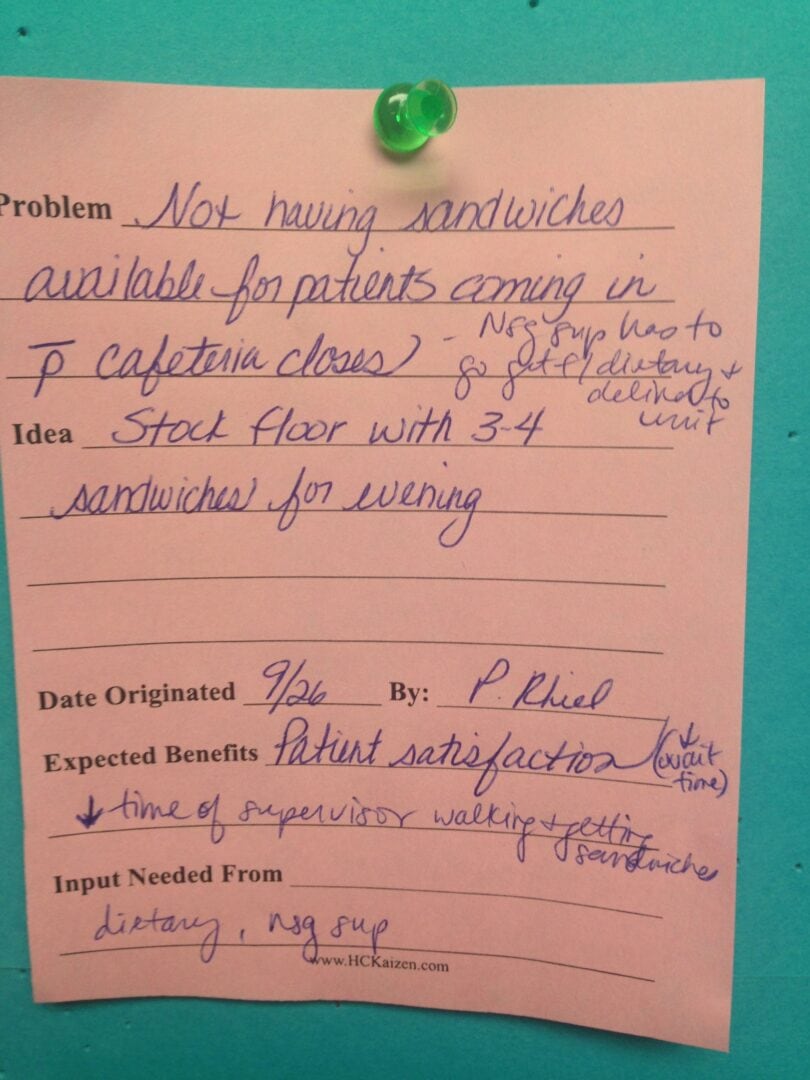 Problem Not having sandwiches
available for patients coming in
p̄ cafeteria closes) - Nsg sup has to
go get f/ dietary +
deliver to
unit
Idea Stock floor with 3-4
sandwiches for evening
Date Originated 9/26 By: P. Rhiel
Expected Benefits Patient satisfaction / (↓ wait
time)
↓ time of supervisor walking + getting
sandwiches
Input Needed From
dietary, nsg sup
www.HCKaizen.com